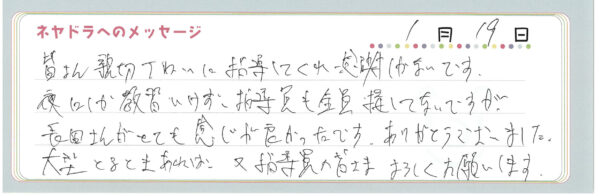 ネヤドラへのメッセージ
1月19日
皆さん親切丁ねいに指導してくれ感謝しかないです。
夜しか教習いけず、指導員も全員接してないですが、
長田さんがとても感じが良かったです。ありがとうございました。
大型とるときあれば 又指導員の皆さま よろしくお願いします。